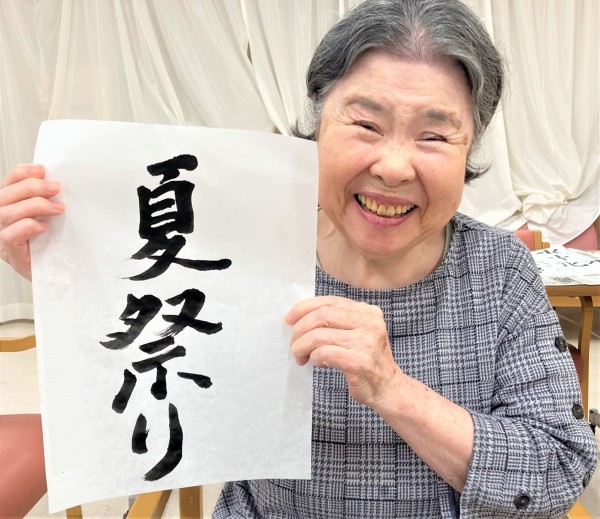 夏祭り